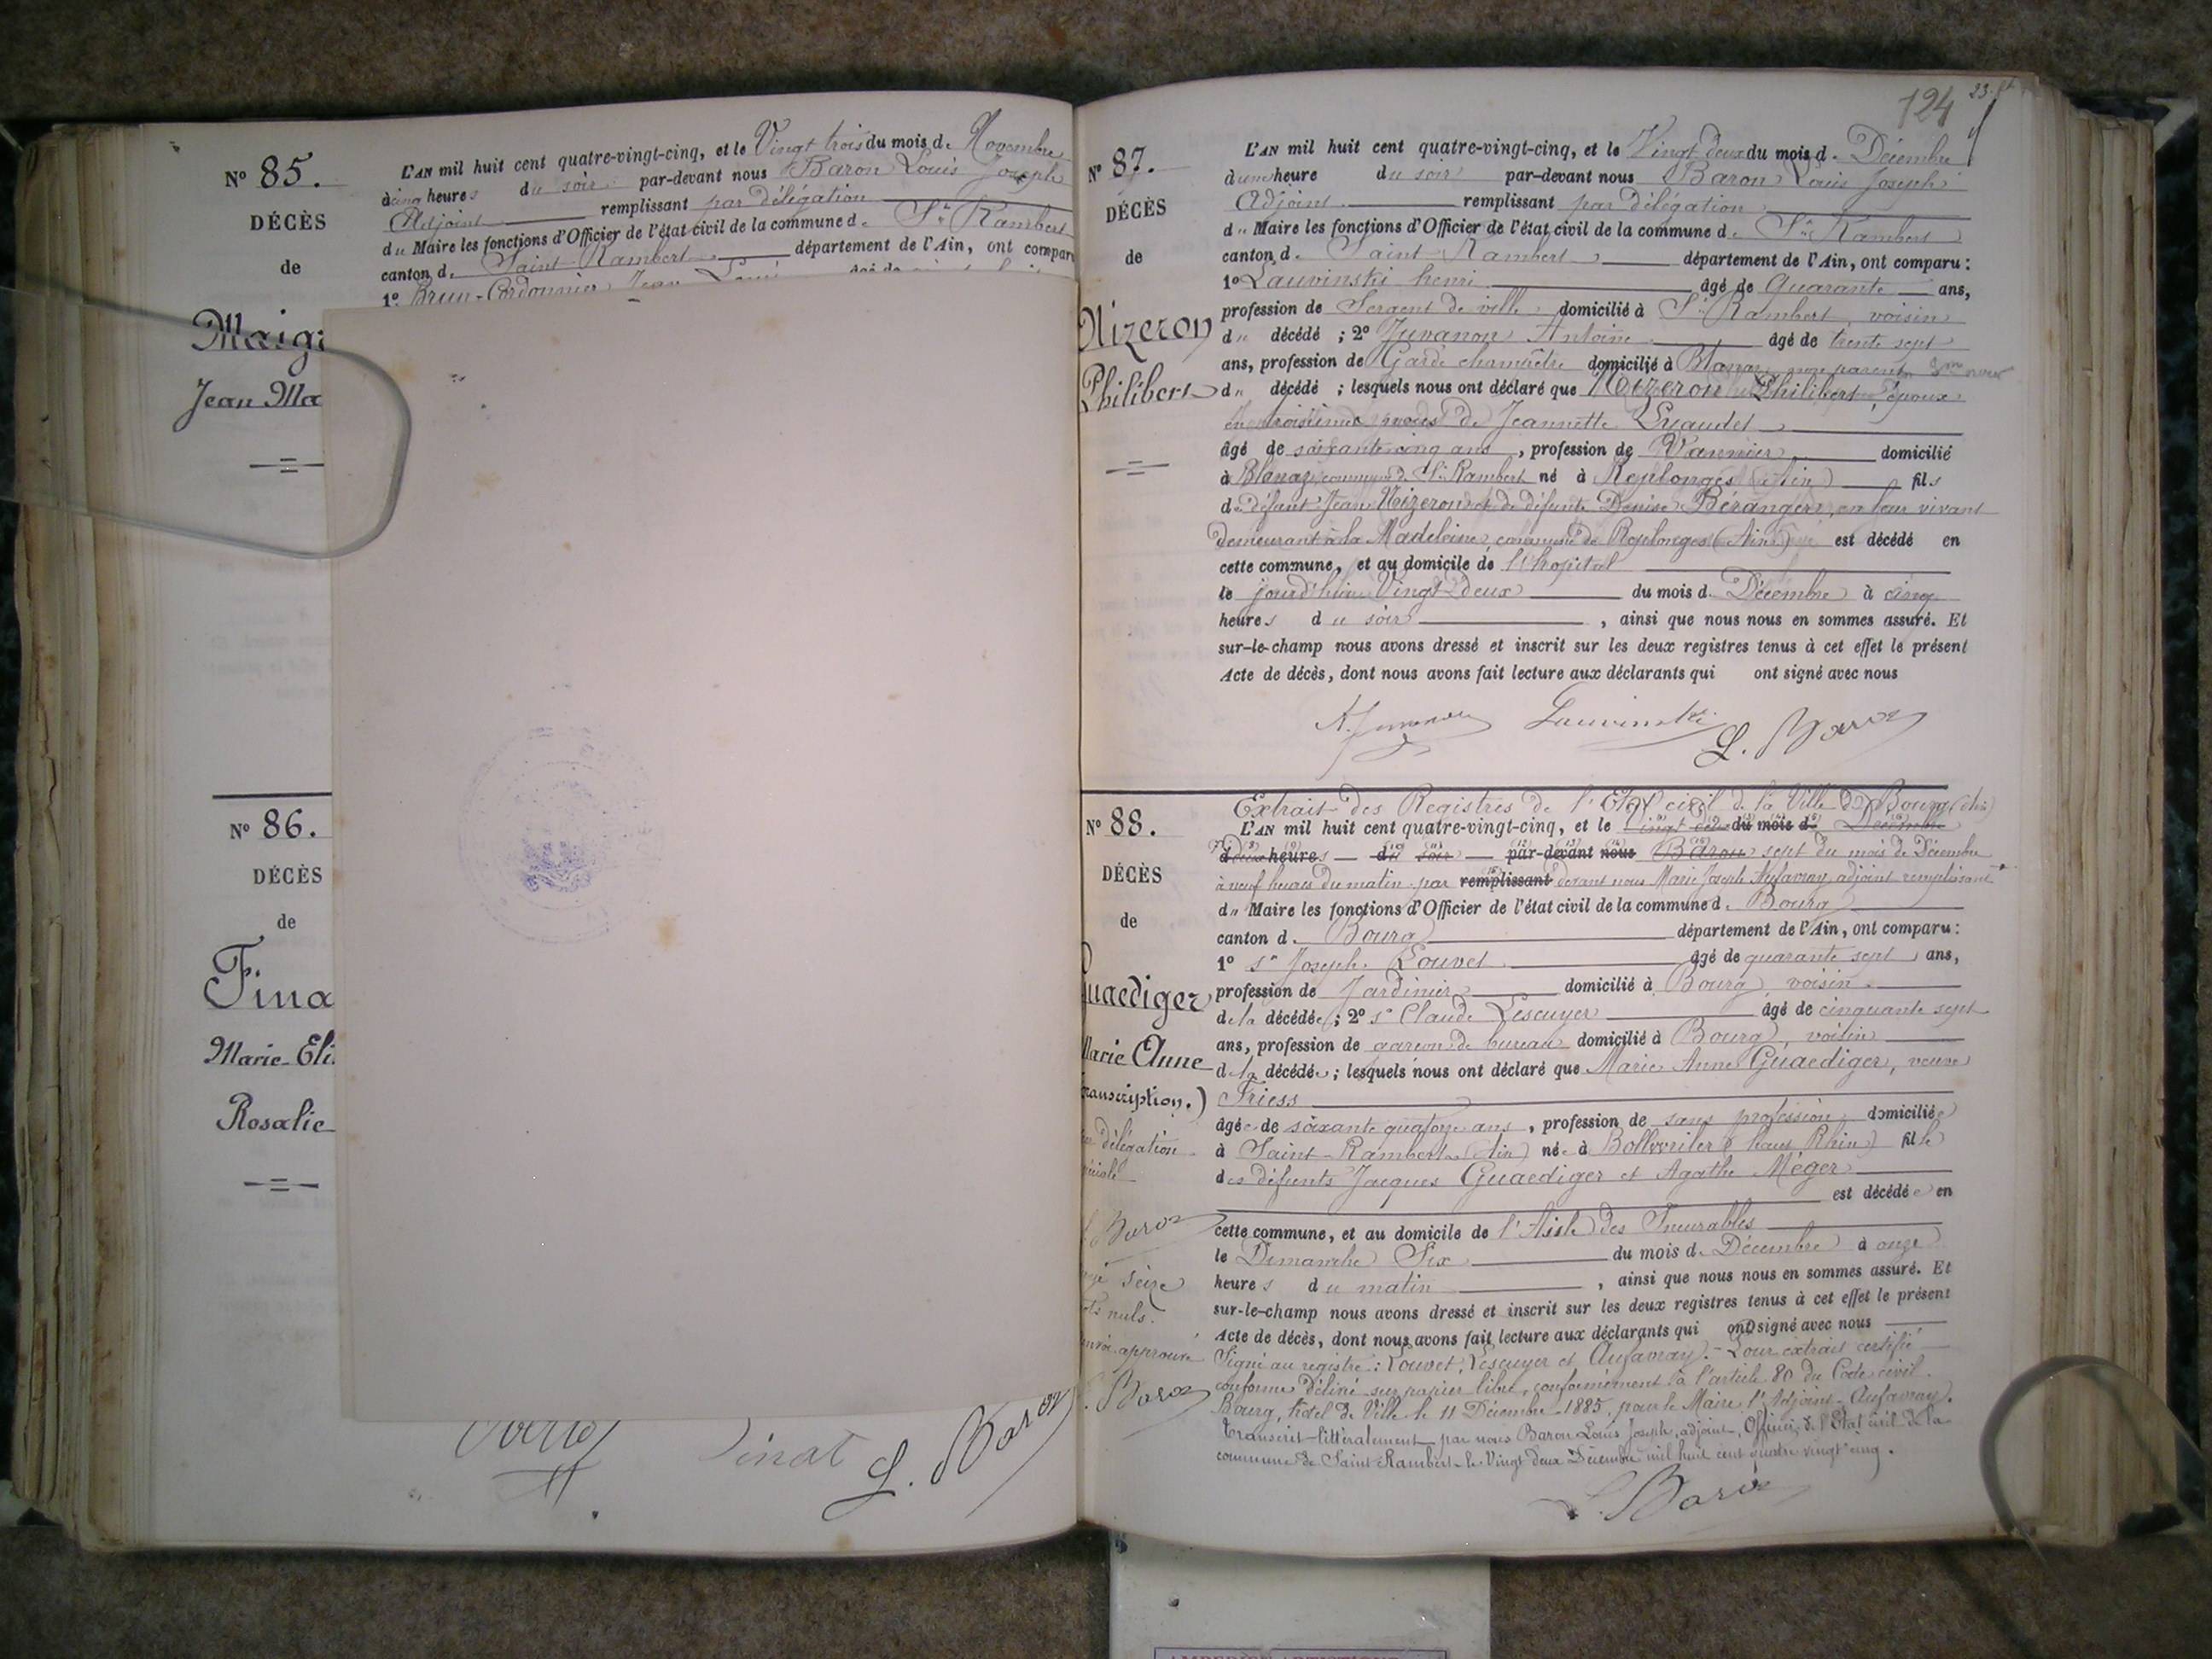 N° 85.
DÉCÈS
de
Maigr
Jean Ma
L'AN mil huit cent quatre-vingt-cinq, et le Vingt trois du mois de Novembre
à cinq heures du soir par-devant nous Baron Louis Joseph
Adjoint remplissant par délégation
du Maire les fonctions d'Officier de l'état civil de la commune de St Rambert
canton de Saint-Rambert département de l'Ain, ont compar
1° Brun-Cordonnier Jean Louis
N° 86.
DÉCÈS
de
Fina
Marie-Eli
Rosalie
Finat L. Baron
124
N° 87.
DÉCÈS
de
Nizeron
Philibert
L'AN mil huit cent quatre-vingt-cinq, et le Vingt deux du mois de Décembre
à une heure du soir par-devant nous Baron Louis Joseph
Adjoint remplissant par délégation
du Maire les fonctions d'Officier de l'état civil de la commune de St Rambert
canton de Saint-Rambert département de l'Ain, ont comparu :
1° Lauvinski henri âgé de Quarante ans,
profession de Sergent de ville domicilié à St Rambert, voisin
du décédé ; 2° Juvanon Antoine âgé de trente sept
ans, profession de Garde champêtre domicilié à Blanaz, non parent
du décédé ; lesquels nous ont déclaré que Nizeron Philibert, époux
en troisième noces de Jeannette Guaudet
âgé de soixante cinq ans, profession de Vannier domicilié
à Blanaz, commune de St Rambert né à Replonges (Ain) fils
de défunt Jean Nizeron et de défunte Denise Béranger, en leur vivant
demeurant à la Madeleine, commune de Replonges (Ain) est décédé en
cette commune, et au domicile de l'hopital
le jourd'hui Vingt-deux du mois de Décembre à cinq
heures du soir, ainsi que nous nous en sommes assuré. Et
sur-le-champ nous avons dressé et inscrit sur les deux registres tenus à cet effet le présent
Acte de décès, dont nous avons fait lecture aux déclarants qui ont signé avec nous
Lauvinski
L. Baron
N° 88.
DÉCÈS
de
Guaediger
Marie Anne
transcription.)
par délégation
spéciale
L. Baron
rayé seize
mots nuls.
renvoi approuvé
L. Baron
Extrait des Registres de l'Etat civil de la Ville de Bourg (Ain)
L'AN mil huit cent quatre-vingt-cinq, et le Vingt deux du mois de Décembre
à deux heures du soir par-devant nous Baron sept du mois de Décembre
à neuf heures du matin par remplissant devant nous Marie Joseph Aufavray, adjoint remplissant
du Maire les fonctions d'Officier de l'état civil de la commune de Bourg
canton de Bourg département de l'Ain, ont comparu :
1° sr Joseph Louvet âgé de quarante sept ans,
profession de Jardinier domicilié à Bourg, voisin
de la décédée ; 2° sr Claude Lescuyer âgé de cinquante sept
ans, profession de garçon de bureau domicilié à Bourg, voisin
de la décédée ; lesquels nous ont déclaré que Marie Anne Guaediger, veuve
Friess
âgée de soixante quatorze ans, profession de sans profession domiciliée
à Saint-Rambert (Ain) née à Bollwriler (haut Rhin) fille
des défunts Jacques Guaediger et Agathe Méger
est décédée en
cette commune, et au domicile de l'Asile des Incurables
le Dimanche Six du mois de Décembre à onze
heures du matin, ainsi que nous nous en sommes assuré. Et
sur-le-champ nous avons dressé et inscrit sur les deux registres tenus à cet effet le présent
Acte de décès, dont nous avons fait lecture aux déclarants qui ont signé avec nous
Signé au registre : Louvet, Lescuyer et Aufavray. - Pour extrait certifié
conforme délivré sur papier libre, conformément à l'article 80 du Code civil.
Bourg, hôtel de Ville le 11 Décembre 1885, pour le Maire, l'Adjoint - Aufavray.
Transcrit littéralement par nous Baron Louis Joseph, adjoint, Officier de l'état civil de la
commune de Saint-Rambert le Vingt deux Décembre mil huit cent quatre vingt cinq.
L. Baron